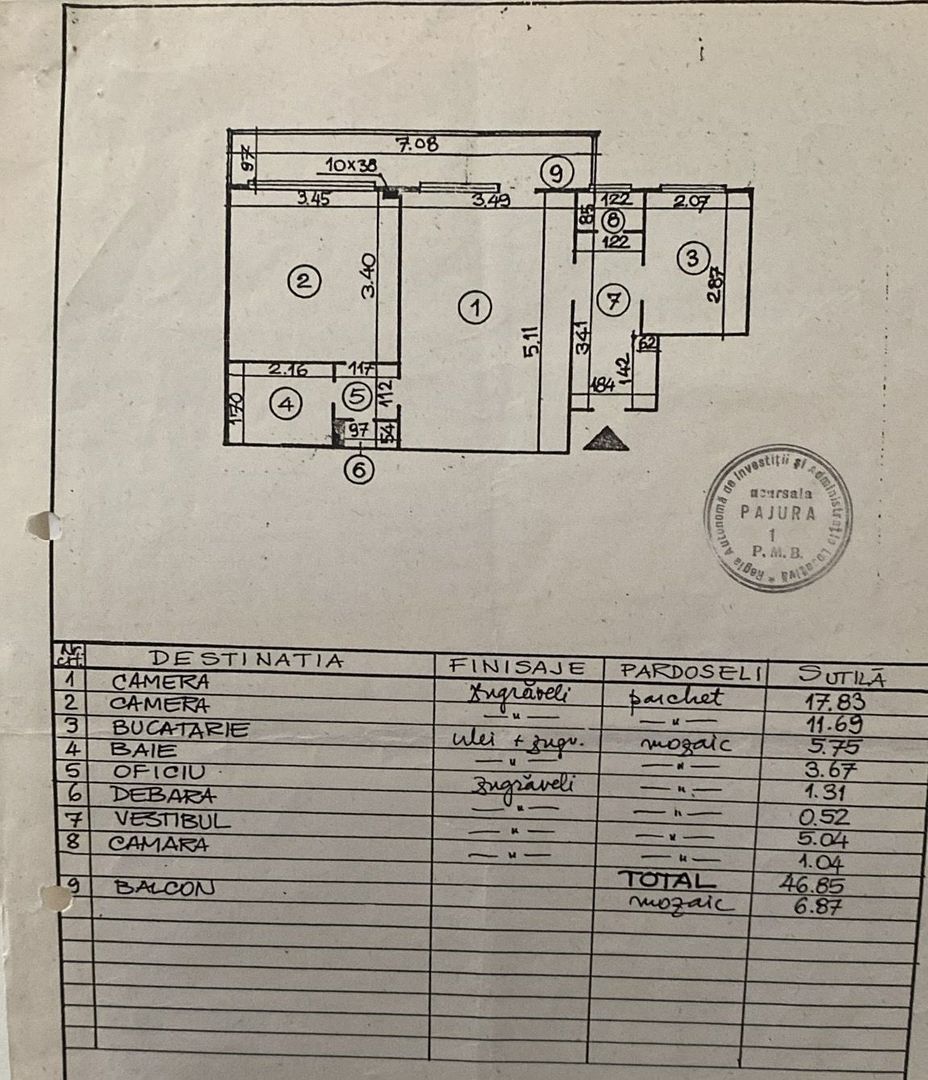 7.08
97
10x38
9
3.45
3.49
122
2.07
85
8
122
3
2
3.40
1
7
2.87
5.11
341
62
2.16
117
142
184
170
4
5
112
97
54
6
Regia Autonomă de Investiții și Administrație Locativă *
sucursala
PAJURA
1
P. M. B.
Nr. crt. DESTINATIA FINISAJE PARDOSELI SUTILĂ
1 CAMERA zugrăveli parchet 17.83
2 CAMERA — " — — " — 11.69
3 BUCATARIE ulei + zugr. mozaic 5.75
4 BAIE — " — — " — 3.67
5 OFICIU zugrăveli — " — 1.31
6 DEBARA — " — — " — 0.52
7 VESTIBUL — " — — " — 5.04
8 CAMARA — " — — " — 1.04
TOTAL 46.85
9 BALCON mozaic 6.87